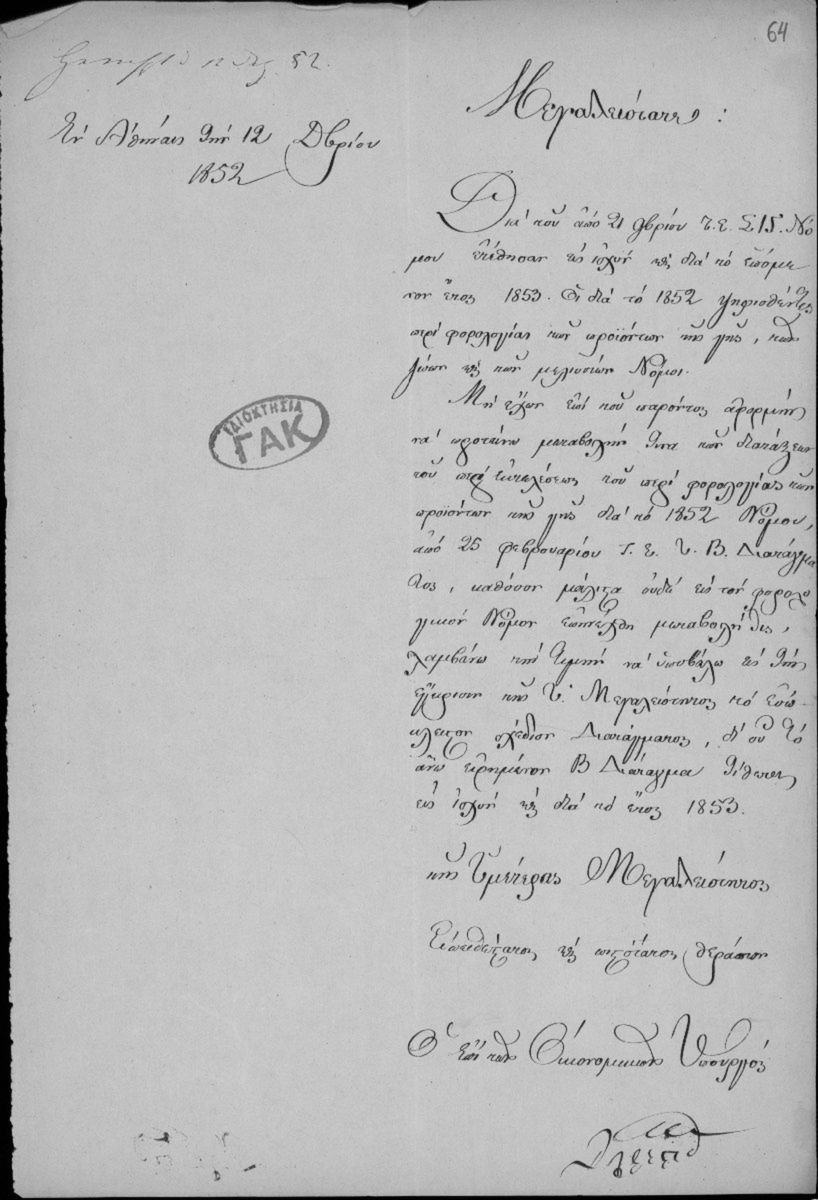 64
52.
Ἐν Ἀθήναις τὴν 12 Δβρίου
1852
Μεγαλειότατε :
Διὰ τοῦ ἀπὸ 21 Ὀβρίου τ. ἔ. ΣΙΕ. Νό
μου ἐτέθησαν εἰς ἰσχὺν καὶ διὰ τὸ ἑπόμε
νον ἔτος 1853. Οἱ διὰ τὸ 1852 ψηφισθέντες
περὶ φορολογίας τῶν προϊόντων τῆς γῆς, τῶν
ζώων καὶ τῶν μελισσιῶν Νόμοι.
Μὴ ἔχων ἐπὶ τοῦ παρόντος ἀφορμὴν
νὰ προτείνω μεταβολήν τινα τῶν διατάξεων
τοῦ περὶ ἐκτελέσεως τοῦ περὶ φορολογίας τῶν
προϊόντων τῆς γῆς διὰ τὸ 1852 Νόμου,
ἀπὸ 25 Φεβρουαρίου τ. ἔ. Υ. Β. Διατάγμα
τος, καθόσον μάλιστα οὐδὲ εἰς τὸν φορολο
γικὸν Νόμον ἐπηνέχθη μεταβολή τις,
λαμβάνω τὴν τιμὴν νὰ ὑποβάλω εἰς τὴν
ἔγκρισιν τῆς Υ. Μεγαλειότητος τὸ ἐσώ
κλειστον σχέδιον Διατάγματος, δι' οὗ τὸ
ἄνω εἰρημένον Β Διάταγμα τίθεται
εἰς ἰσχὺν καὶ διὰ τὸ ἔτος 1853.
ΙΔΙΟΚΤΗΣΙΑ
ΓΑΚ
τῆς Ὑμετέρας Μεγαλειότητος
Εὐπειθέστατος καὶ πιστότατος θεράπων
Ὁ ἐπὶ τῶν Οἰκονομικῶν Ὑπουργός